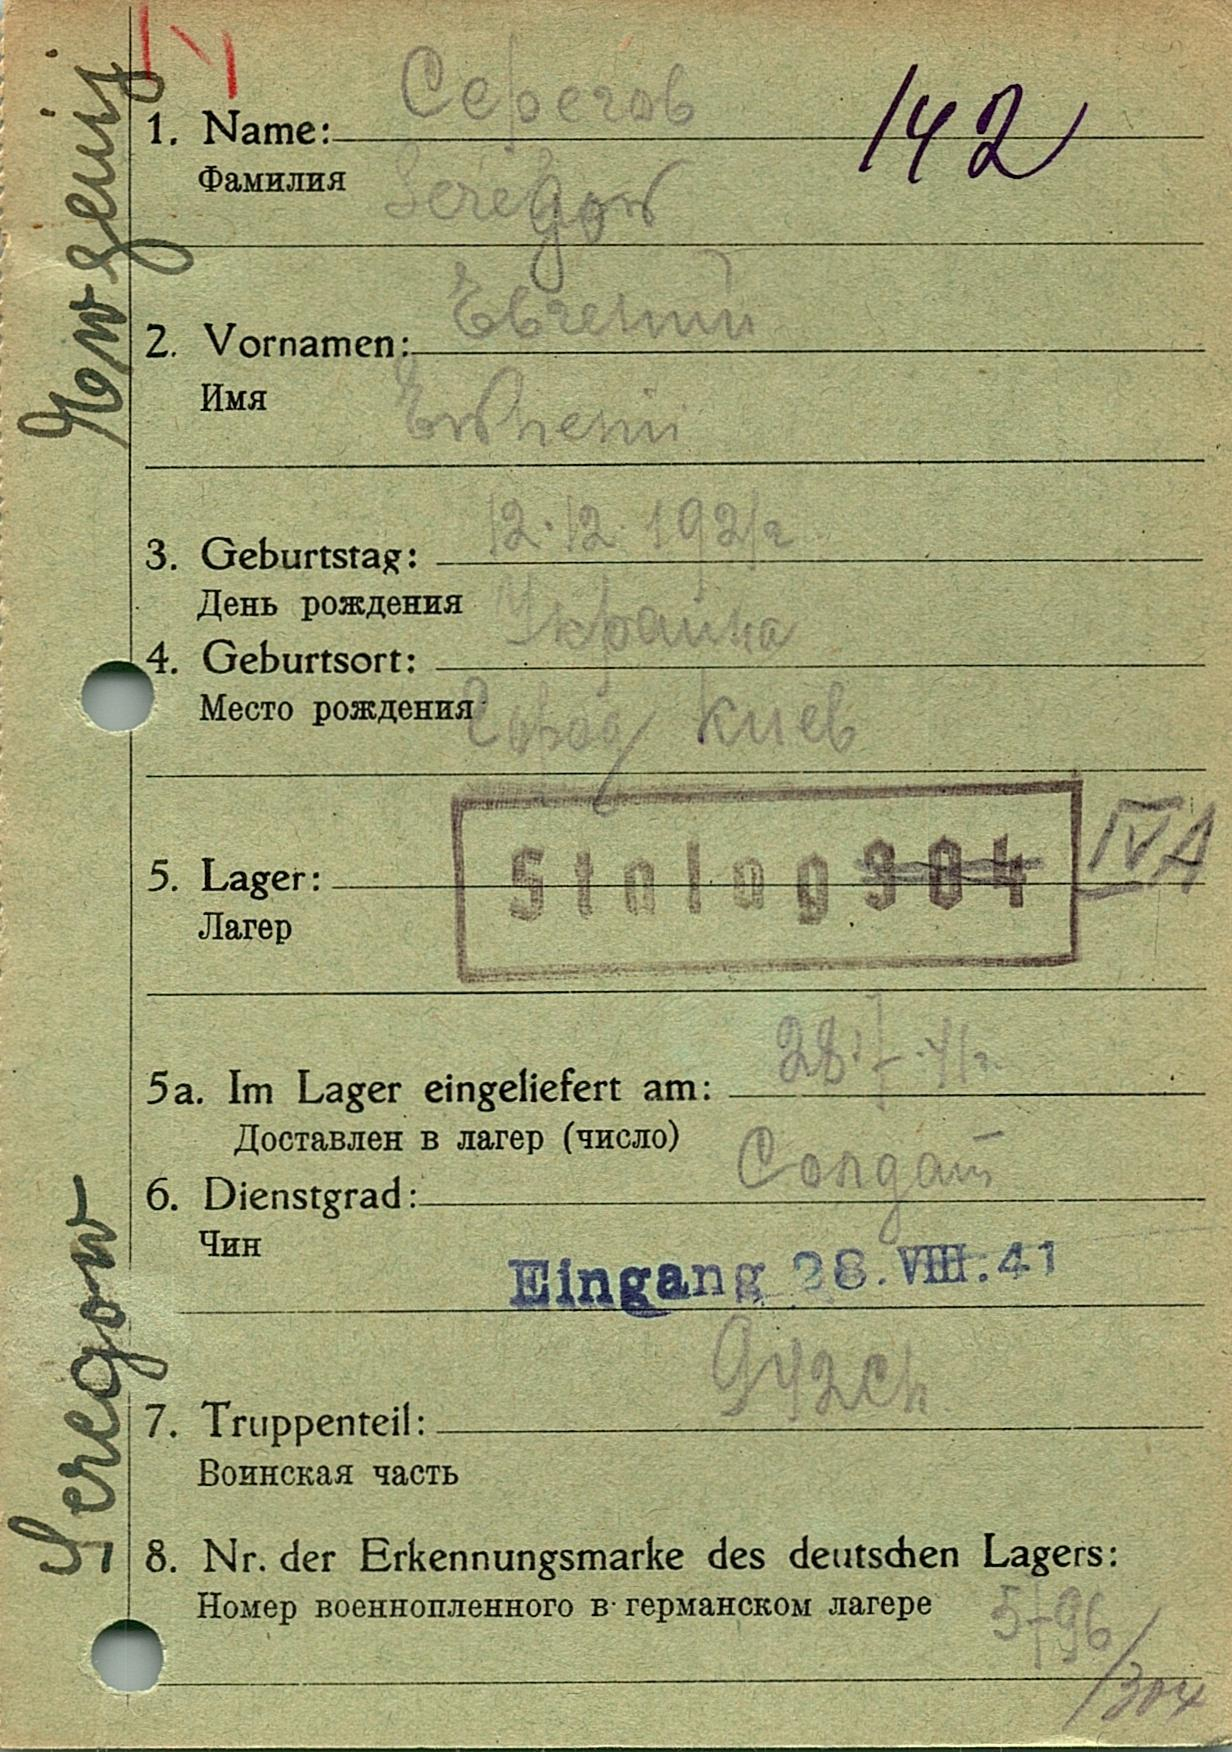 Серегов
142
1. Name:
Фамилия
Seregow
Евгений
2. Vornamen:
Имя
12.12.1921г
3. Geburtstag:
День рождения
Украина
4. Geburtsort:
Место рождения
Город Киев
5. Lager: Stalag 304 IV A
Лагер
28.7.41г.
5a. Im Lager eingeliefert am:
Доставлен в лагер (число)
Солдат
6. Dienstgrad:
Чин
Eingang 28.VIII.41
7. Truppenteil:
Воинская часть
8. Nr. der Erkennungsmarke des deutschen Lagers:
Номер военнопленного в германском лагере
5796/304
Seregow
Jewgenij